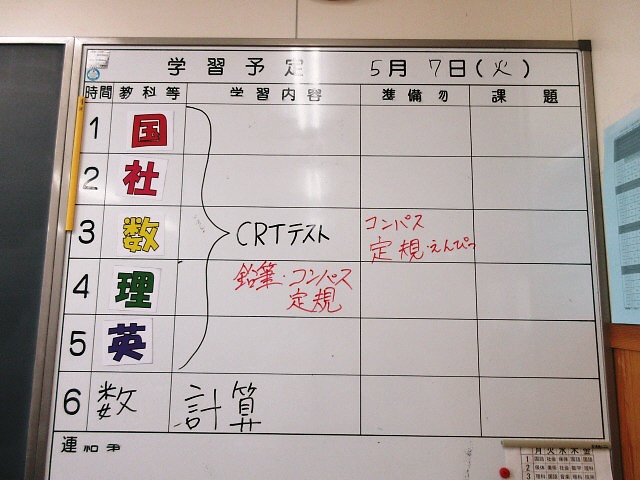 学習予定 5月 7日(火)
時間 教科等 学習内容 準備物 課題
1 国
2 社
3 数 CRTテスト コンパス
定規・えんぴつ
4 理 鉛筆・コンパス
定規
5 英
6 数 計算
月火水木金